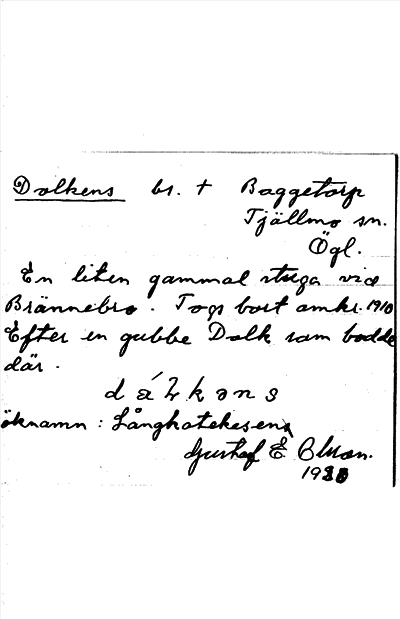 Dalkens br. + Baggetorp
Tjällmo sn.
Ögl.
En liten gammal stuga vid
Brännebro. Togs bort omkr. 1910
Efter en gubbe Dalk som bodde
där.
öknamn: Långhatekesens
Gustaf E. Olsson.